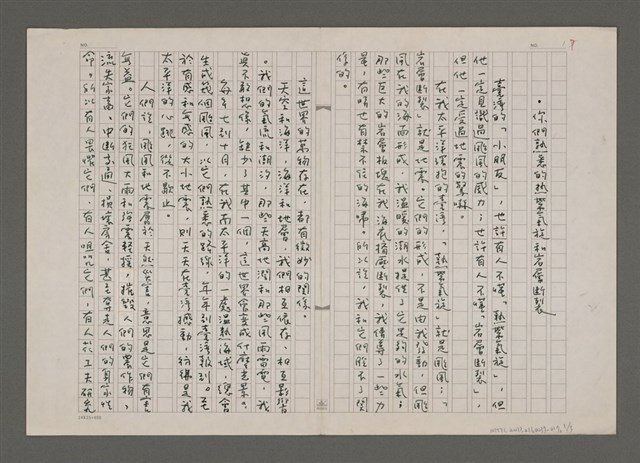 你們熟悉的熱帶氣旋和岩層斷裂
臺灣的「小朋友」,也許有人不懂「熱帶氣旋」,但
他一定見識過颱風的威力;也許有人不懂「岩層斷裂」,
但他一定受過地震的驚嚇。
在我太平洋環抱的臺灣,「熱帶氣旋」就是颱風;「
岩層斷裂」就是地震。它們的形成,不是由我發動,但颱
風在我的海面形成,我溫暖的潮水提供了它足夠的水氣;
那些巨大的岩層板塊在我海底擠壓斷裂,我傳導了一些力
量,有時也有禁不住的海嘯。所以說,我和它們脫不了關
係的。
這世界的萬物存在,都有微妙的關係。
天空和海洋,海洋和地層,我們相互依存、相互影響
。我們的氣流和潮汐,那些天高地闊和那些風雨雷電,我
真不敢想像,缺少了其中一個,這世界會變成什麼光景。
每年七到十月,在我西太平洋的一處溫熱海域,總會
生成幾個颱風,以它們熟悉的路線,年年到臺灣報到。至
於有感和無感的大小地震,則天天在臺灣撼動,彷彿是我
太平洋的心跳,從不歇止。
人們說,颱風和地震屬於天然災害,意思是它們有害
無益。它們的狂風大雨和強震輕搖,摧毀人們的農作物,
流失家畜,中斷交通、損壞房舍,甚至奪走人們的身家性
命。所以有人畏懼它們,有人咀咒它們,有人花工夫研究